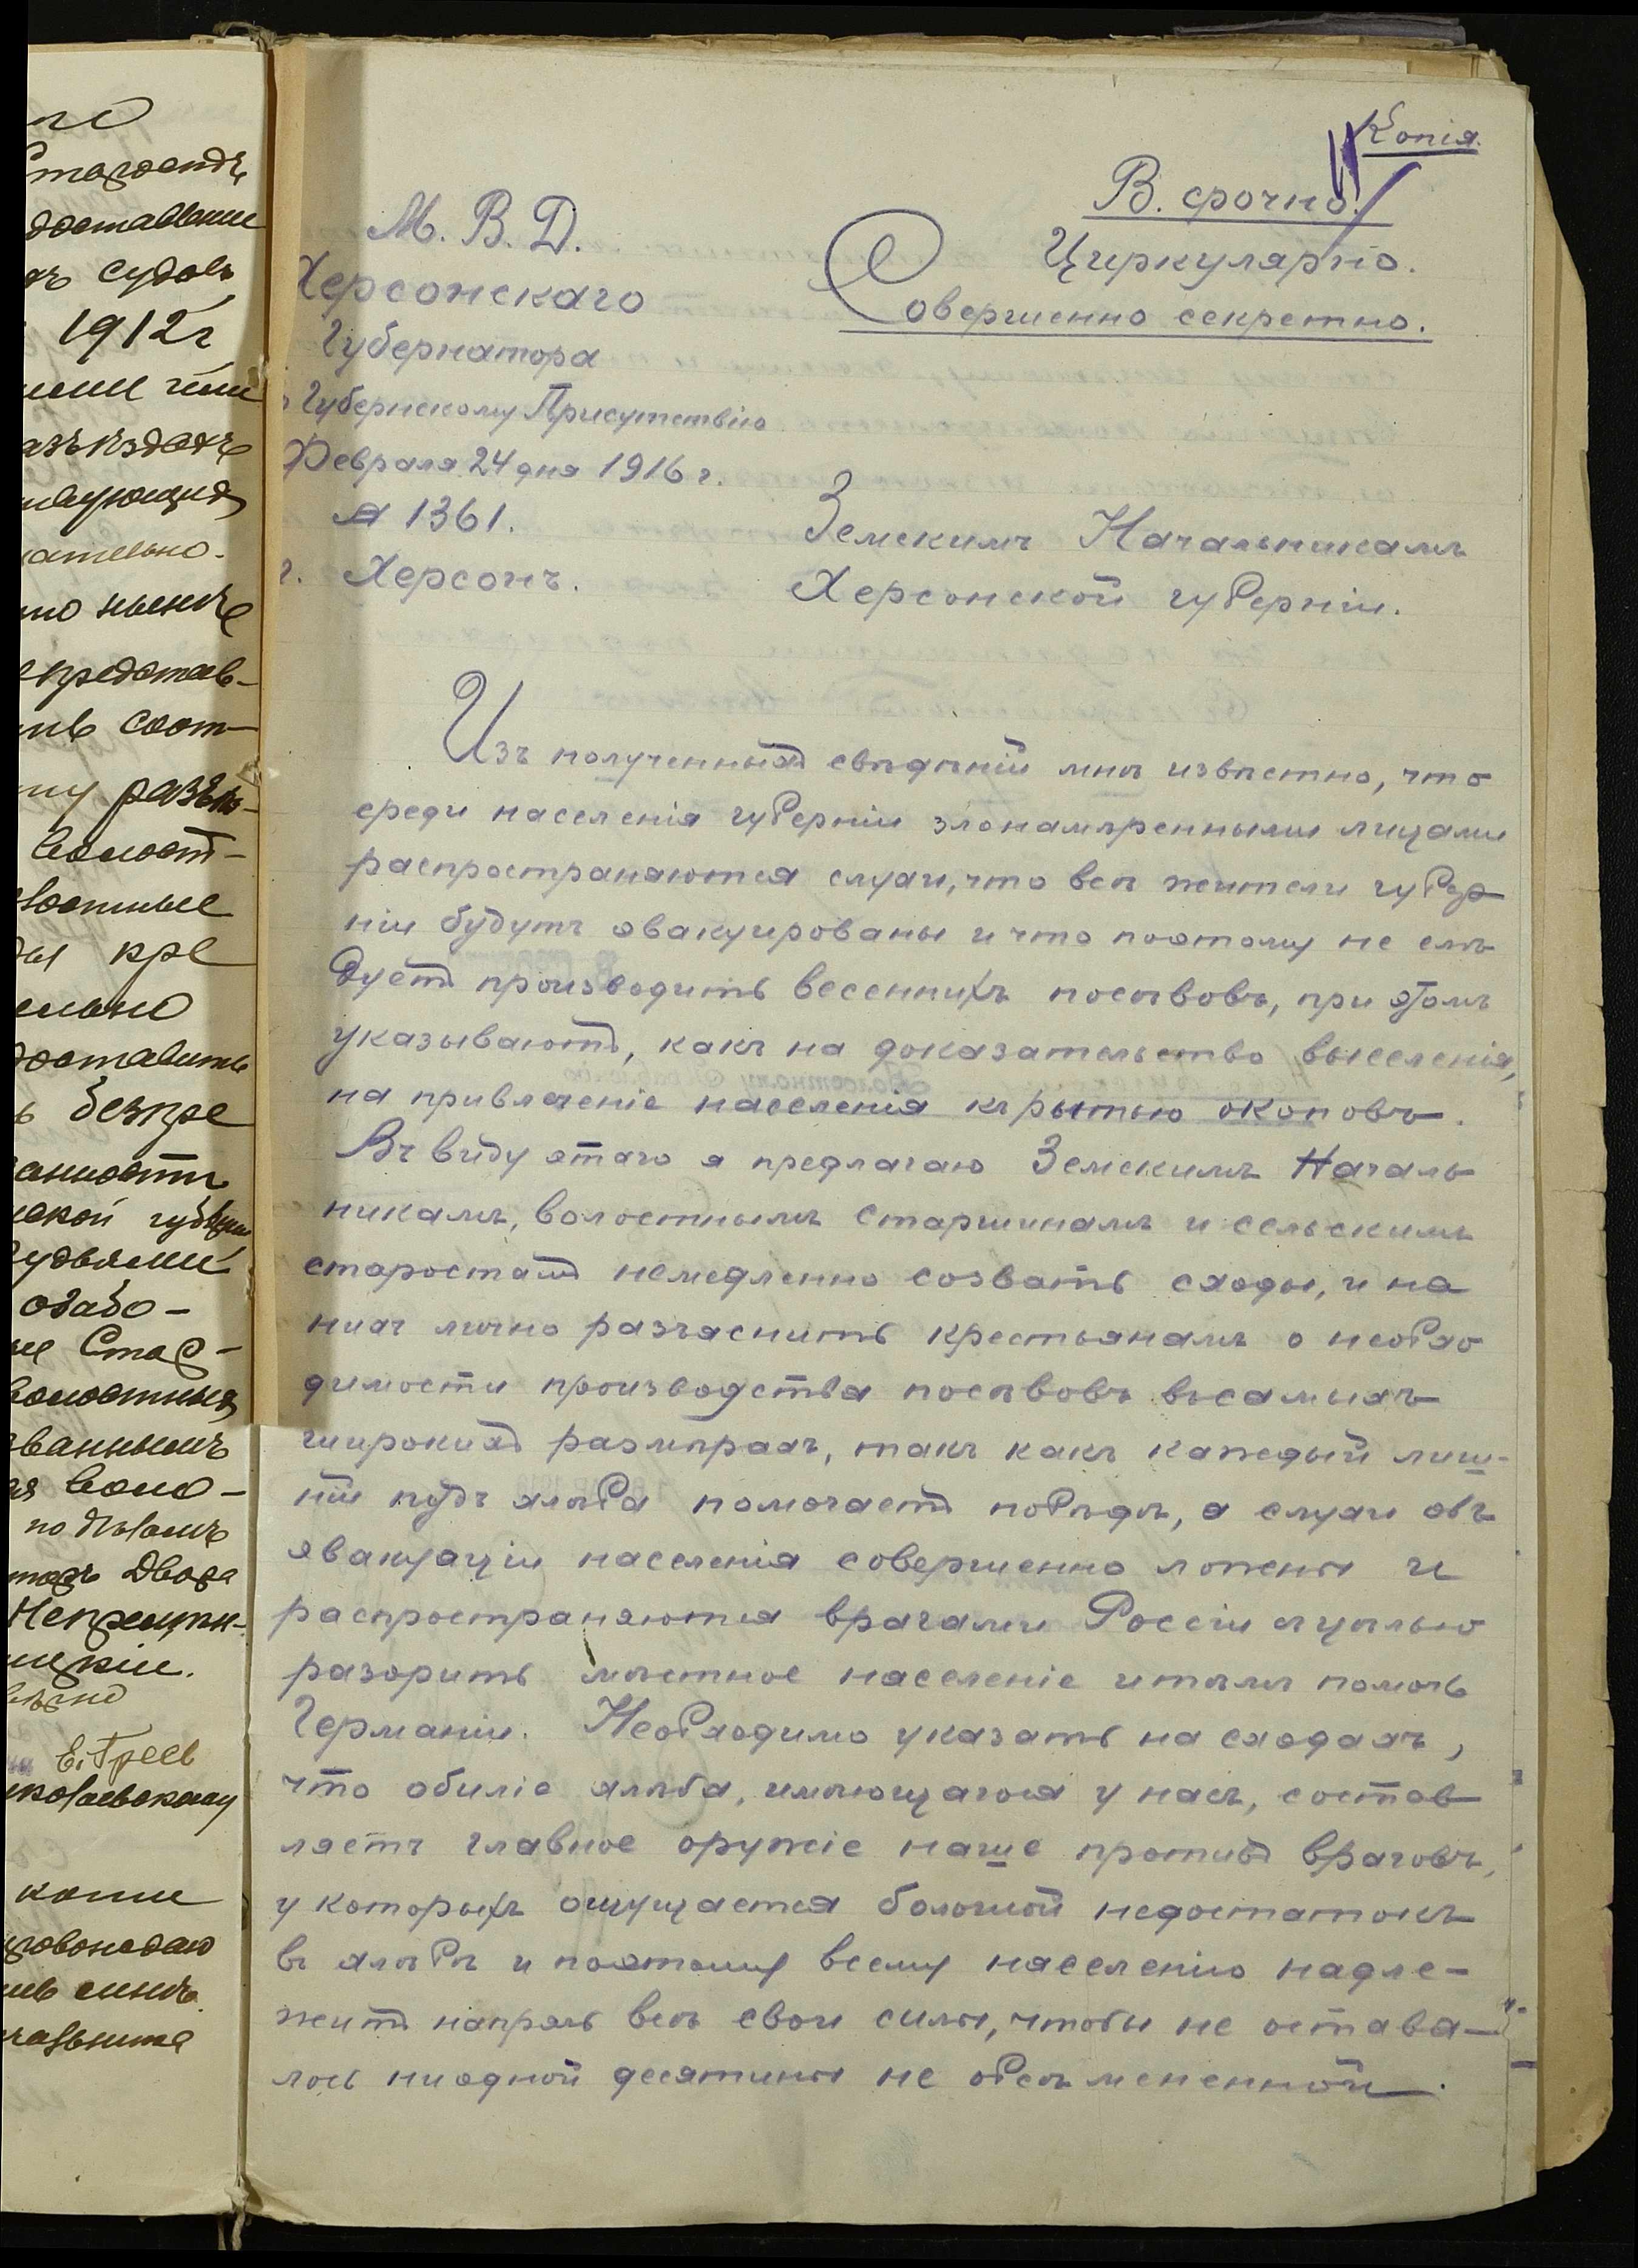 Копія.
В. срочно.
Циркулярно.
Совершенно секретно.
М. В. Д.
Херсонскаго
Губернатора
Губернскому Присутствію
Февраля 24 дня 1916 г.
№ 1361.
г. Херсонъ.
Земскимъ Начальникамъ
Херсонской губерніи.
Изъ полученныхъ свѣдѣній мнѣ извѣстно, что
среди населенія губерніи злонамѣренными лицами
распространяются слухи, что всѣ жители губер
ніи будутъ эвакуированы и что поэтому не слѣ
дуетъ производить весеннихъ посѣвовъ, при этомъ
указываютъ, какъ на доказательство выселенія,
на привлеченіе населенія къ рытью окоповъ.
Въ виду этого я предлагаю Земскимъ Началь
никамъ, волостнымъ старшинамъ и сельскимъ
старостамъ немедленно созвать сходы, и на
нихъ лично разъяснить крестьянамъ о необхо
димости производства посѣвовъ въ самыхъ
широкихъ размѣрахъ, такъ какъ каждый лиш-
ній пудъ хлѣба помогаетъ побѣдѣ, а слухи объ
эвакуаціи населенія совершенно ложны и
распространяются врагами Россіи съ цѣлью
разорить мѣстное населеніе и тѣмъ помочь
Германіи. Необходимо указать на сходахъ,
что обиліе хлѣба, имѣющагося у насъ, состав
ляетъ главное оружіе наше противъ враговъ,
у которыхъ ощущается большой недостатокъ
въ хлѣбѣ и поэтому всему населенію надле-
житъ напрячь всѣ свои силы, чтобы не остава-
лось ни одной десятины не обсѣмененной.
доставленіе
1912 г
представ-
соот-
волост-
доставить
безпре
ской губерніи
судьями
озабо-
волостныя
званнымъ
воло-
Двора
копіи